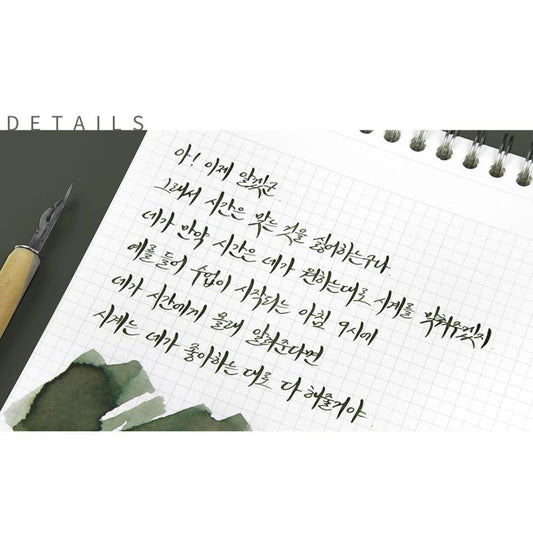 DETAILS
아! 이제 알겠군.
그래서 시간은 맞는 것을 싫어하는구나
네가 만약 시간은 네가 원하는대로 시계를 맞춰주겠지.
예를 들어 수업이 시작되는 아침 9시에
네가 시간에게 몰래 알려준다면
시계는 네가 좋아하는 대로 다 해줄거야